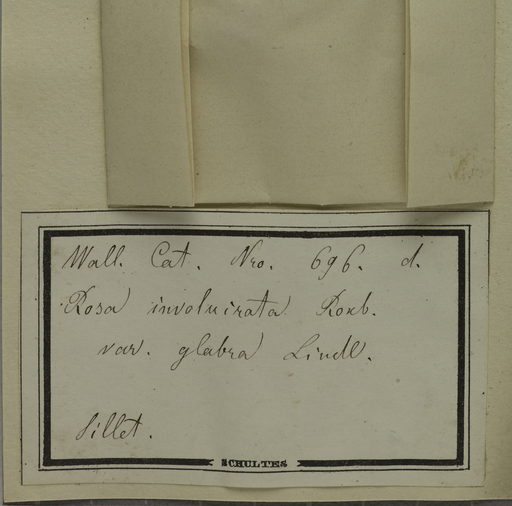 Wall. Cat. Nro. 696. d.
Rosa involucrata Roxb.
var. glabra Lindl.
Sillet.
SCHULTES